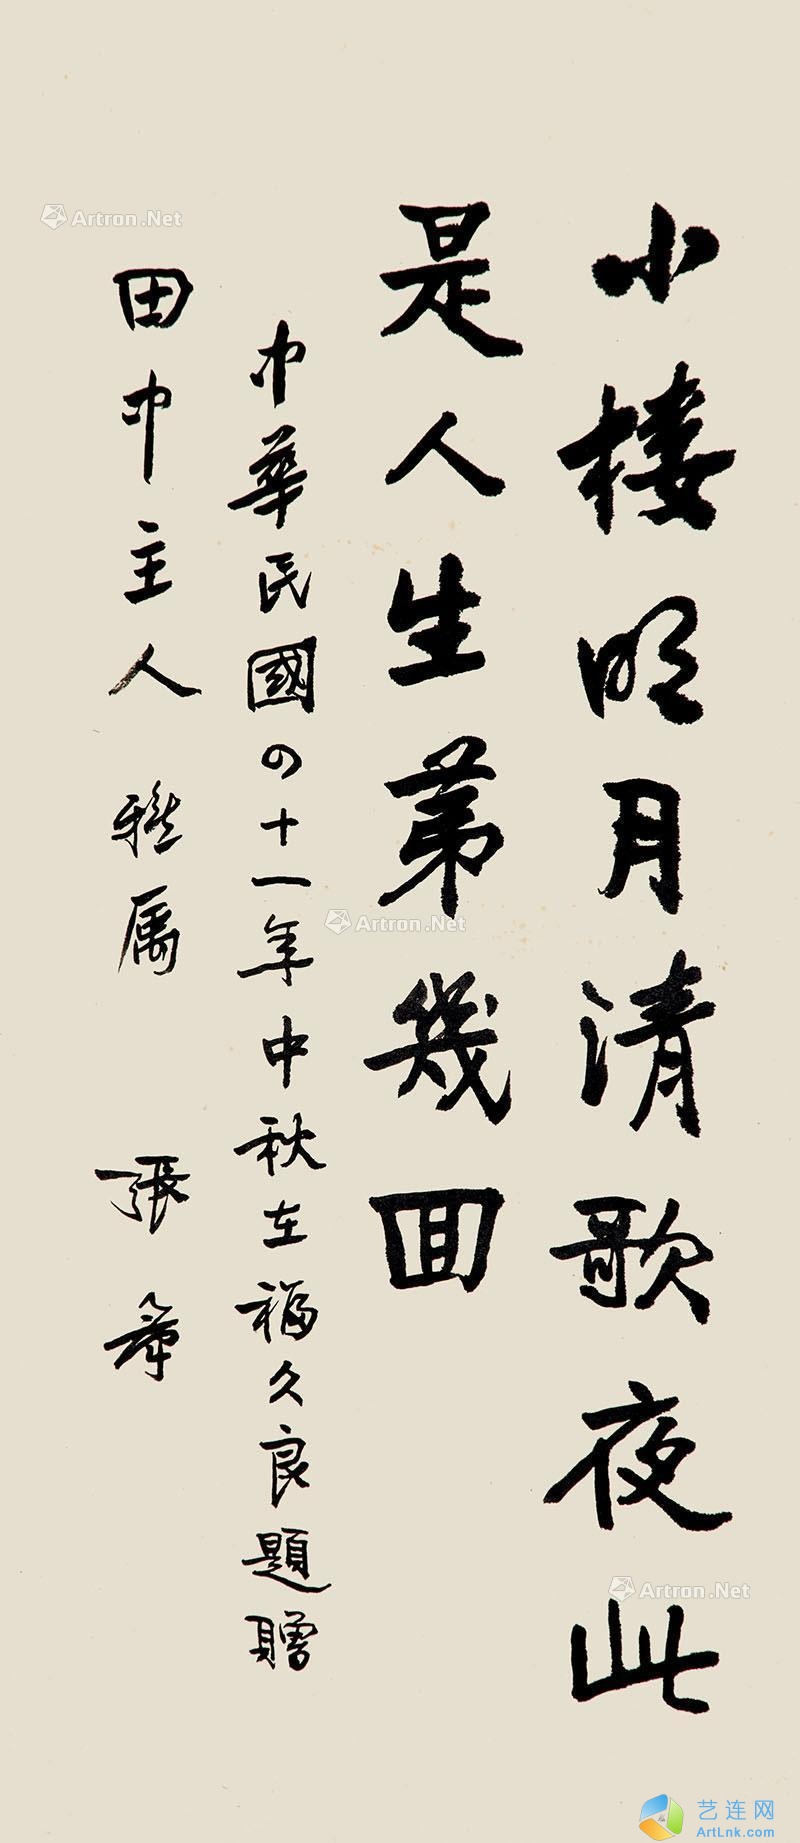 小楼明月清歌夜此
是人生第幾回
中華民國四十一年中秋在福久良題贈
田中主人 雅属 張羣
Artron.Net
Artron.Net
Artron.Net
艺连网
ArtLnk.com